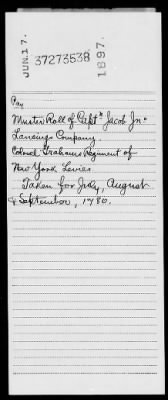 JUN. 17.
37273538
1897.
Pay
Muster Roll of Capt. Jacob Jn.
Lansings Company.
Colonel Grahams Regiment of
New York Levies
Taken for July, August
& September, 1780.